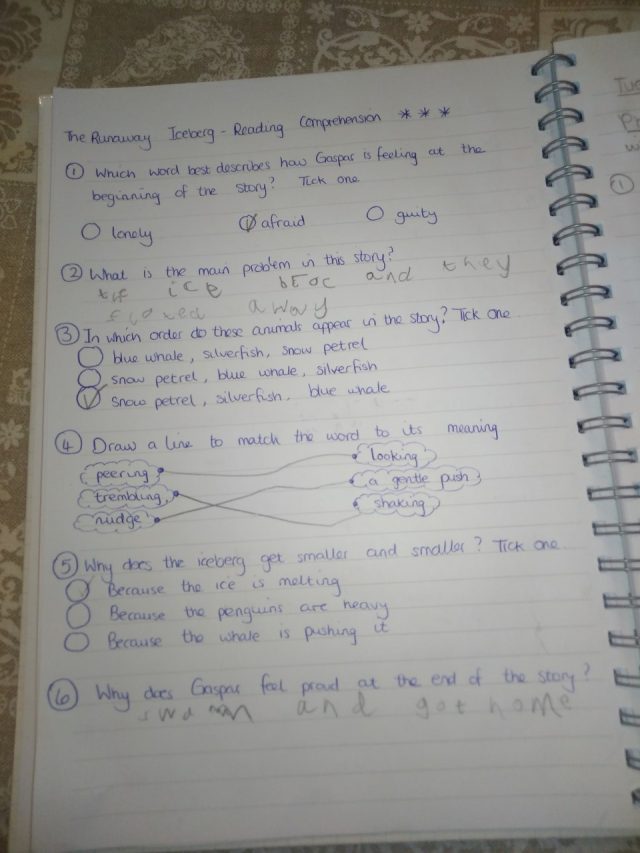 The Runaway Iceberg - Reading Comprehension * * *
① Which word best describes how Gaspar is feeling at the
beginning of the story? Tick one
lonely afraid guity
② What is the main problem in this story?
ice and they
away
③ In which order do these animals appear in the story? Tick one
blue whale, silverfish, snow petrel
snow petrel, blue whale, silverfish
snow petrel, silverfish, blue whale
④ Draw a line to match the word to its meaning
peering looking
trembling a gentle push
nudge shaking
⑤ Why does the iceberg get smaller and smaller? Tick one
Because the ice is melting
Because the penguins are heavy
Because the whale is pushing it
⑥ Why does Gaspar feel proud at the end of the story?
and got home
①